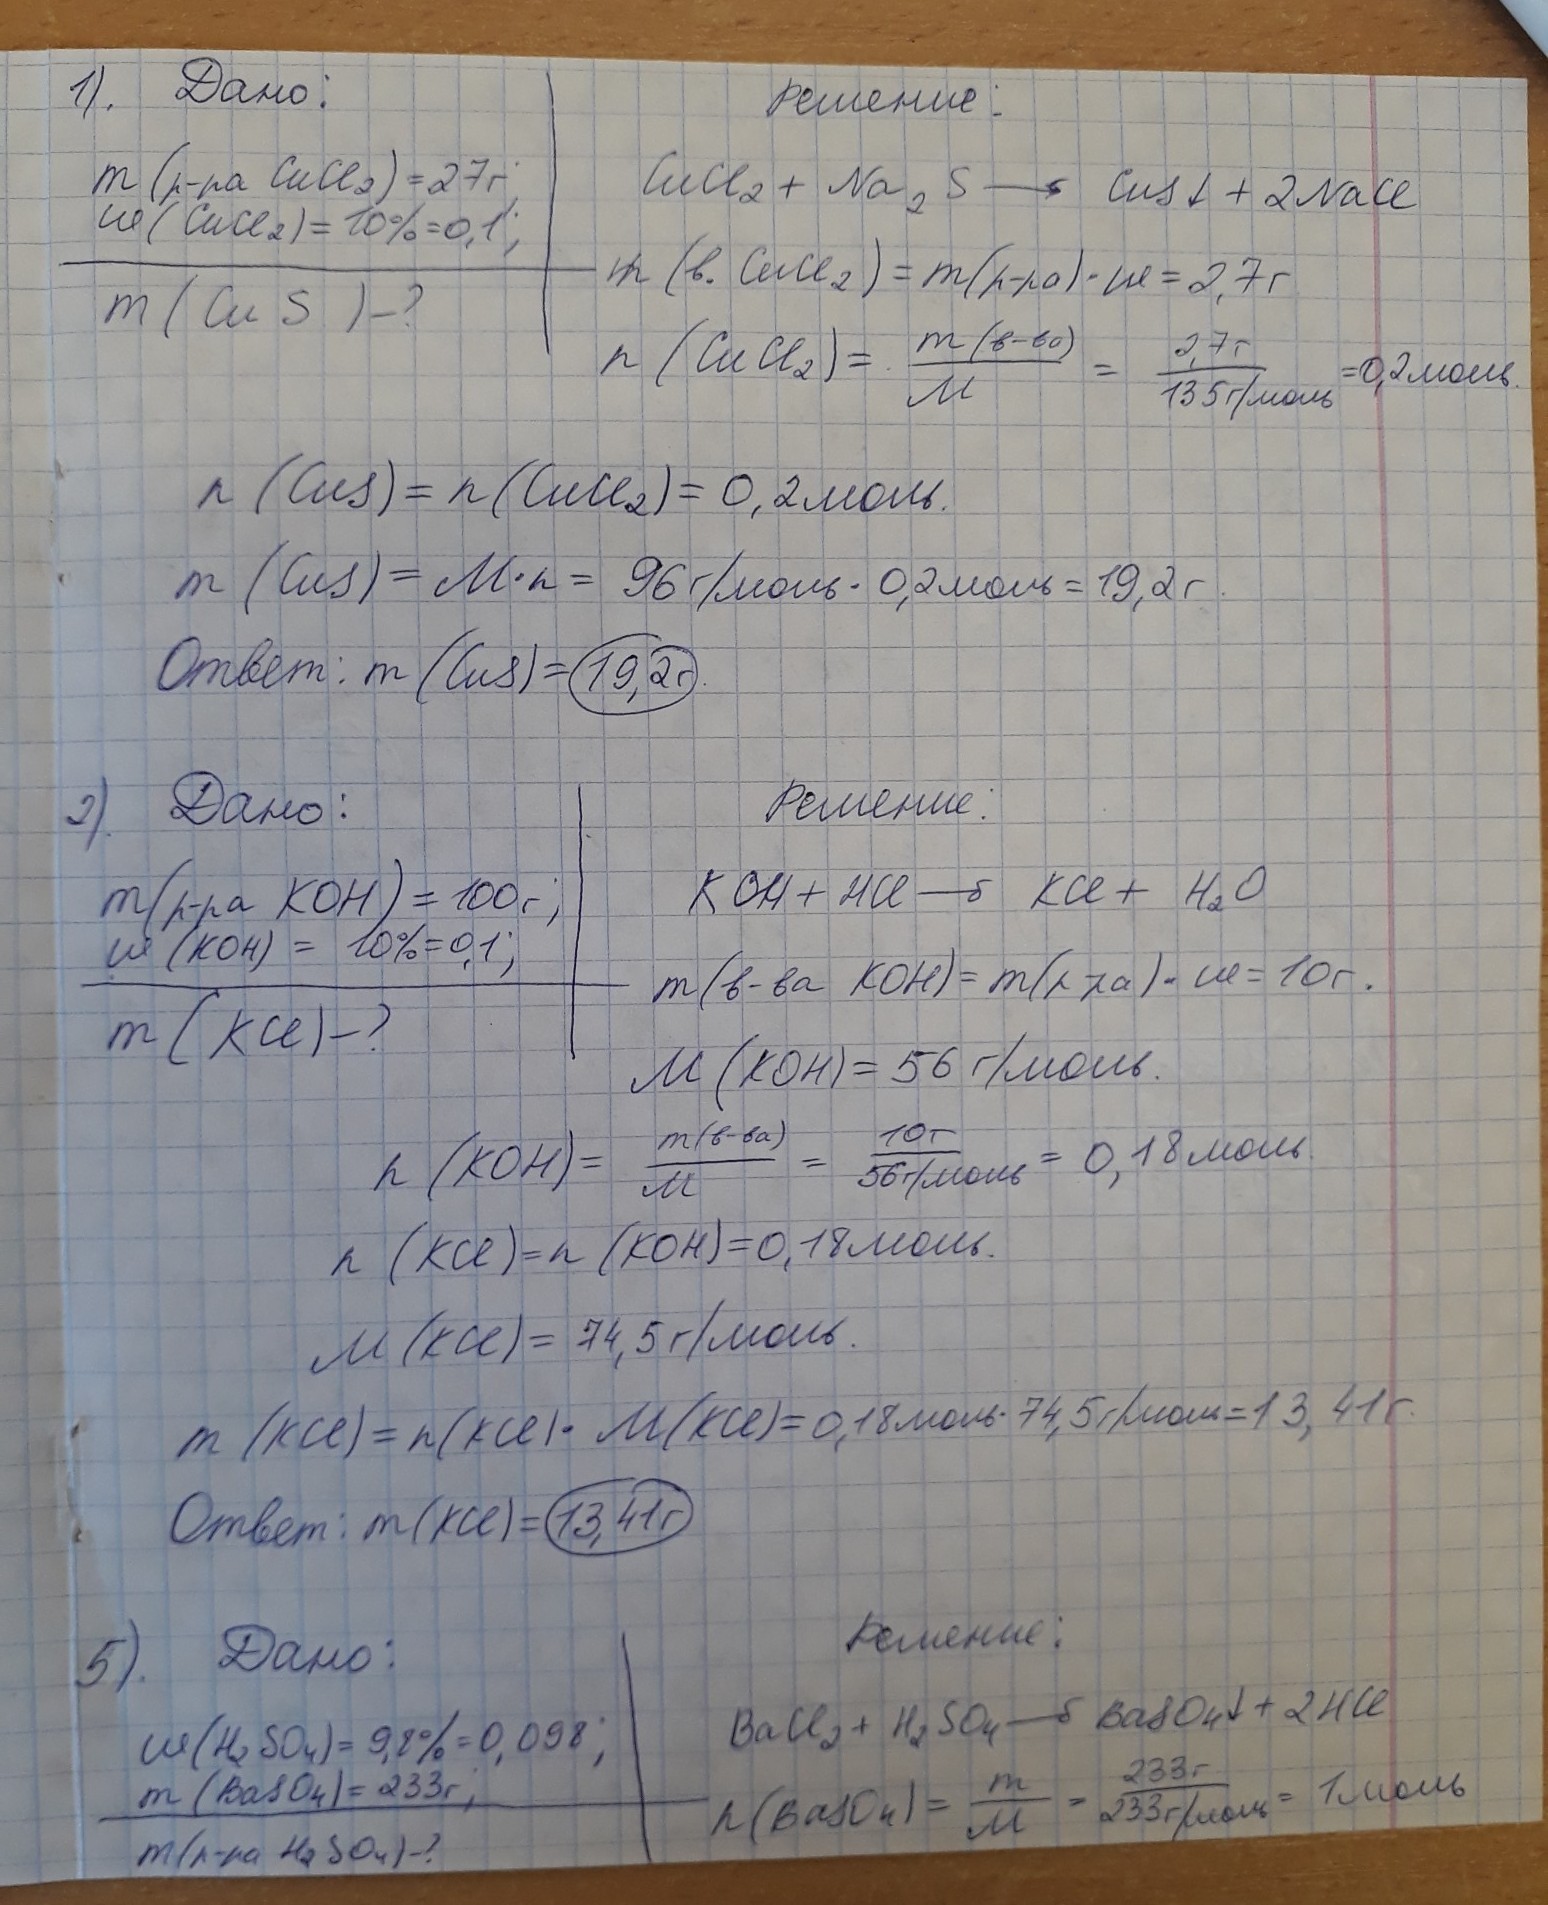 1). Дано:
Решение:
m(р-ра CuCl2)=27г;
ω(CuCl2)=10%=0,1;
m(CuS)-?
CuCl2 + Na2S → CuS↓ + 2NaCl
m(в. CuCl2)=m(р-ра)·ω=2,7г
n(CuCl2)= m(в-ва)/M = 2,7г/135г/моль =0,2моль.
n(CuS)=n(CuCl2)=0,2моль.
m(CuS)=M·n=96г/моль·0,2моль=19,2г.
Ответ: m(CuS)=19,2г.
2). Дано:
Решение:
m(р-ра KOH)=100г;
ω(KOH)=10%=0,1;
m(KCl)-?
KOH + HCl → KCl + H2O
m(в-ва KOH)=m(р-ра)·ω=10г.
M(KOH)=56г/моль.
n(KOH)= m(в-ва)/M = 10г/56г/моль = 0,18моль.
n(KCl)=n(KOH)=0,18моль.
M(KCl)=74,5г/моль.
m(KCl)=n(KCl)·M(KCl)=0,18моль·74,5г/моль=13,41г.
Ответ: m(KCl)=13,41г
5). Дано:
Решение:
ω(H2SO4)=9,8%=0,098;
m(BaSO4)=233г;
m(р-ра H2SO4)-?
BaCl2 + H2SO4 → BaSO4↓ + 2HCl
n(BaSO4)= m/M = 233г/233г/моль = 1моль